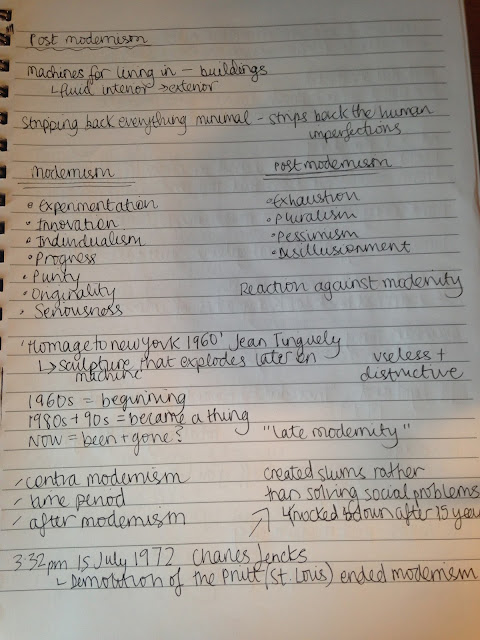 Post modernism
machines for living in – buildings
↳ fluid interior → exterior
stripping back everything minimal – strips back the human
imperfections
modernism
Postmodernism
• Experimentation
• Innovation
• Individualism
• Progress
• Purity
• Originality
• Seriousness
• Exhaustion
• Pluralism
• Pessimism
• Disillusionment
Reaction against modernity
'Homage to new york 1960' Jean Tinguely
↳ sculpture that explodes later on
machine
useless +
distructive
1960s = beginning
1980s + 90s = became a thing
NOW = been + gone?
"late modernity"
/ contra modernism
/ time period
/ after modernism
created slums rather
than solving social problems
knocked down after 15 year
3:32pm 15 July 1972 Charles Jencks
↳ Demolition of the Pruitt (St. Louis) ended modernism